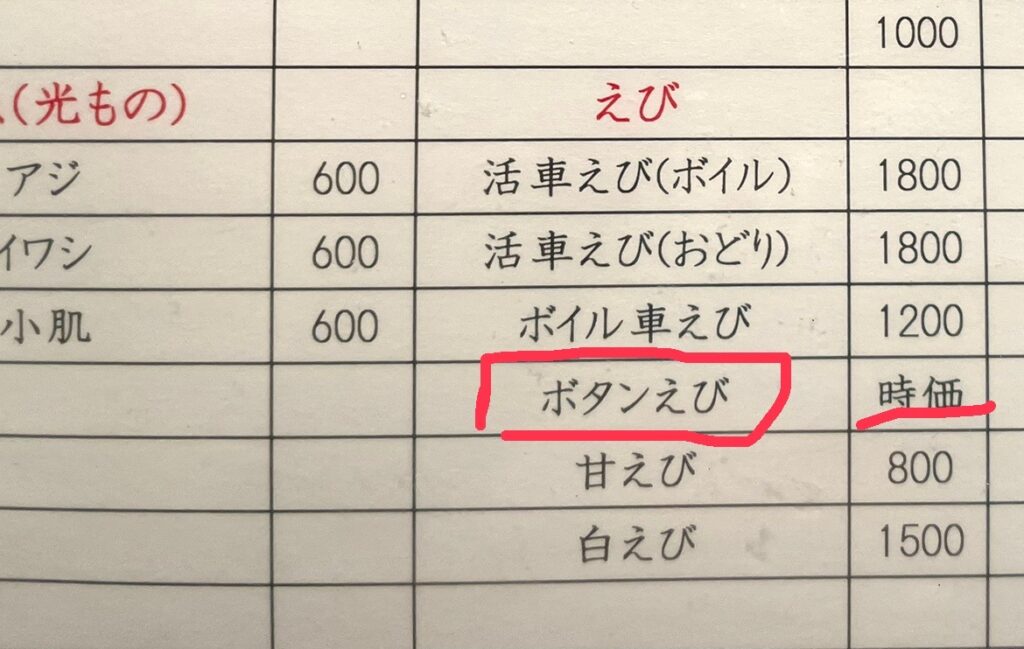 1000
(光もの) えび
アジ 600 活車えび(ボイル) 1800
イワシ 600 活車えび(おどり) 1800
小肌 600 ボイル車えび 1200
ボタンえび 時価
甘えび 800
白えび 1500